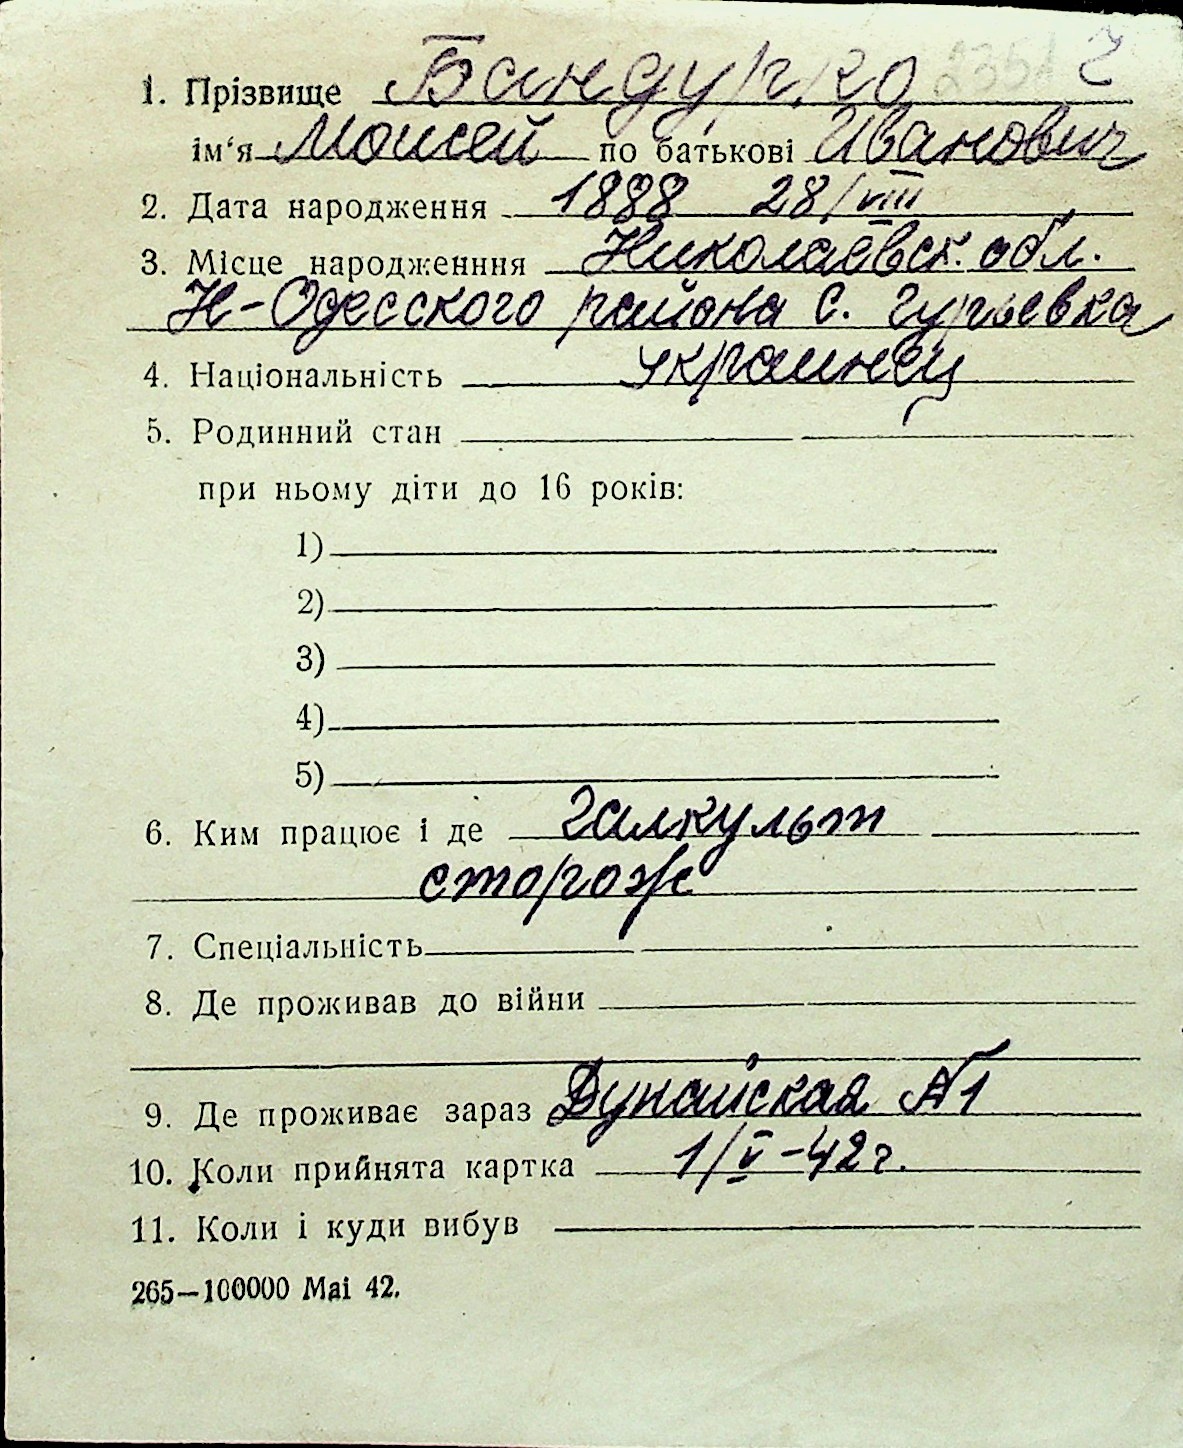 1. Прізвище Бандурко 2351 ч
ім‘я Моисей по батькові Иванович
2. Дата народження 1888 28/VIII
3. Місце народженння Николаевск. обл.
Н-Одесского района с. Гурьевка
4. Національність украинец
5. Родинний стан
при ньому діти до 16 років:
1)
2)
3)
4)
5)
6. Ким працює і де Галкульт
сторож
7. Спеціальність
8. Де проживав до війни
9. Де проживає зараз Дунайская №1
10. Коли прийнята картка 1/V-42г.
11. Коли і куди вибув
265—100000 Mai 42.